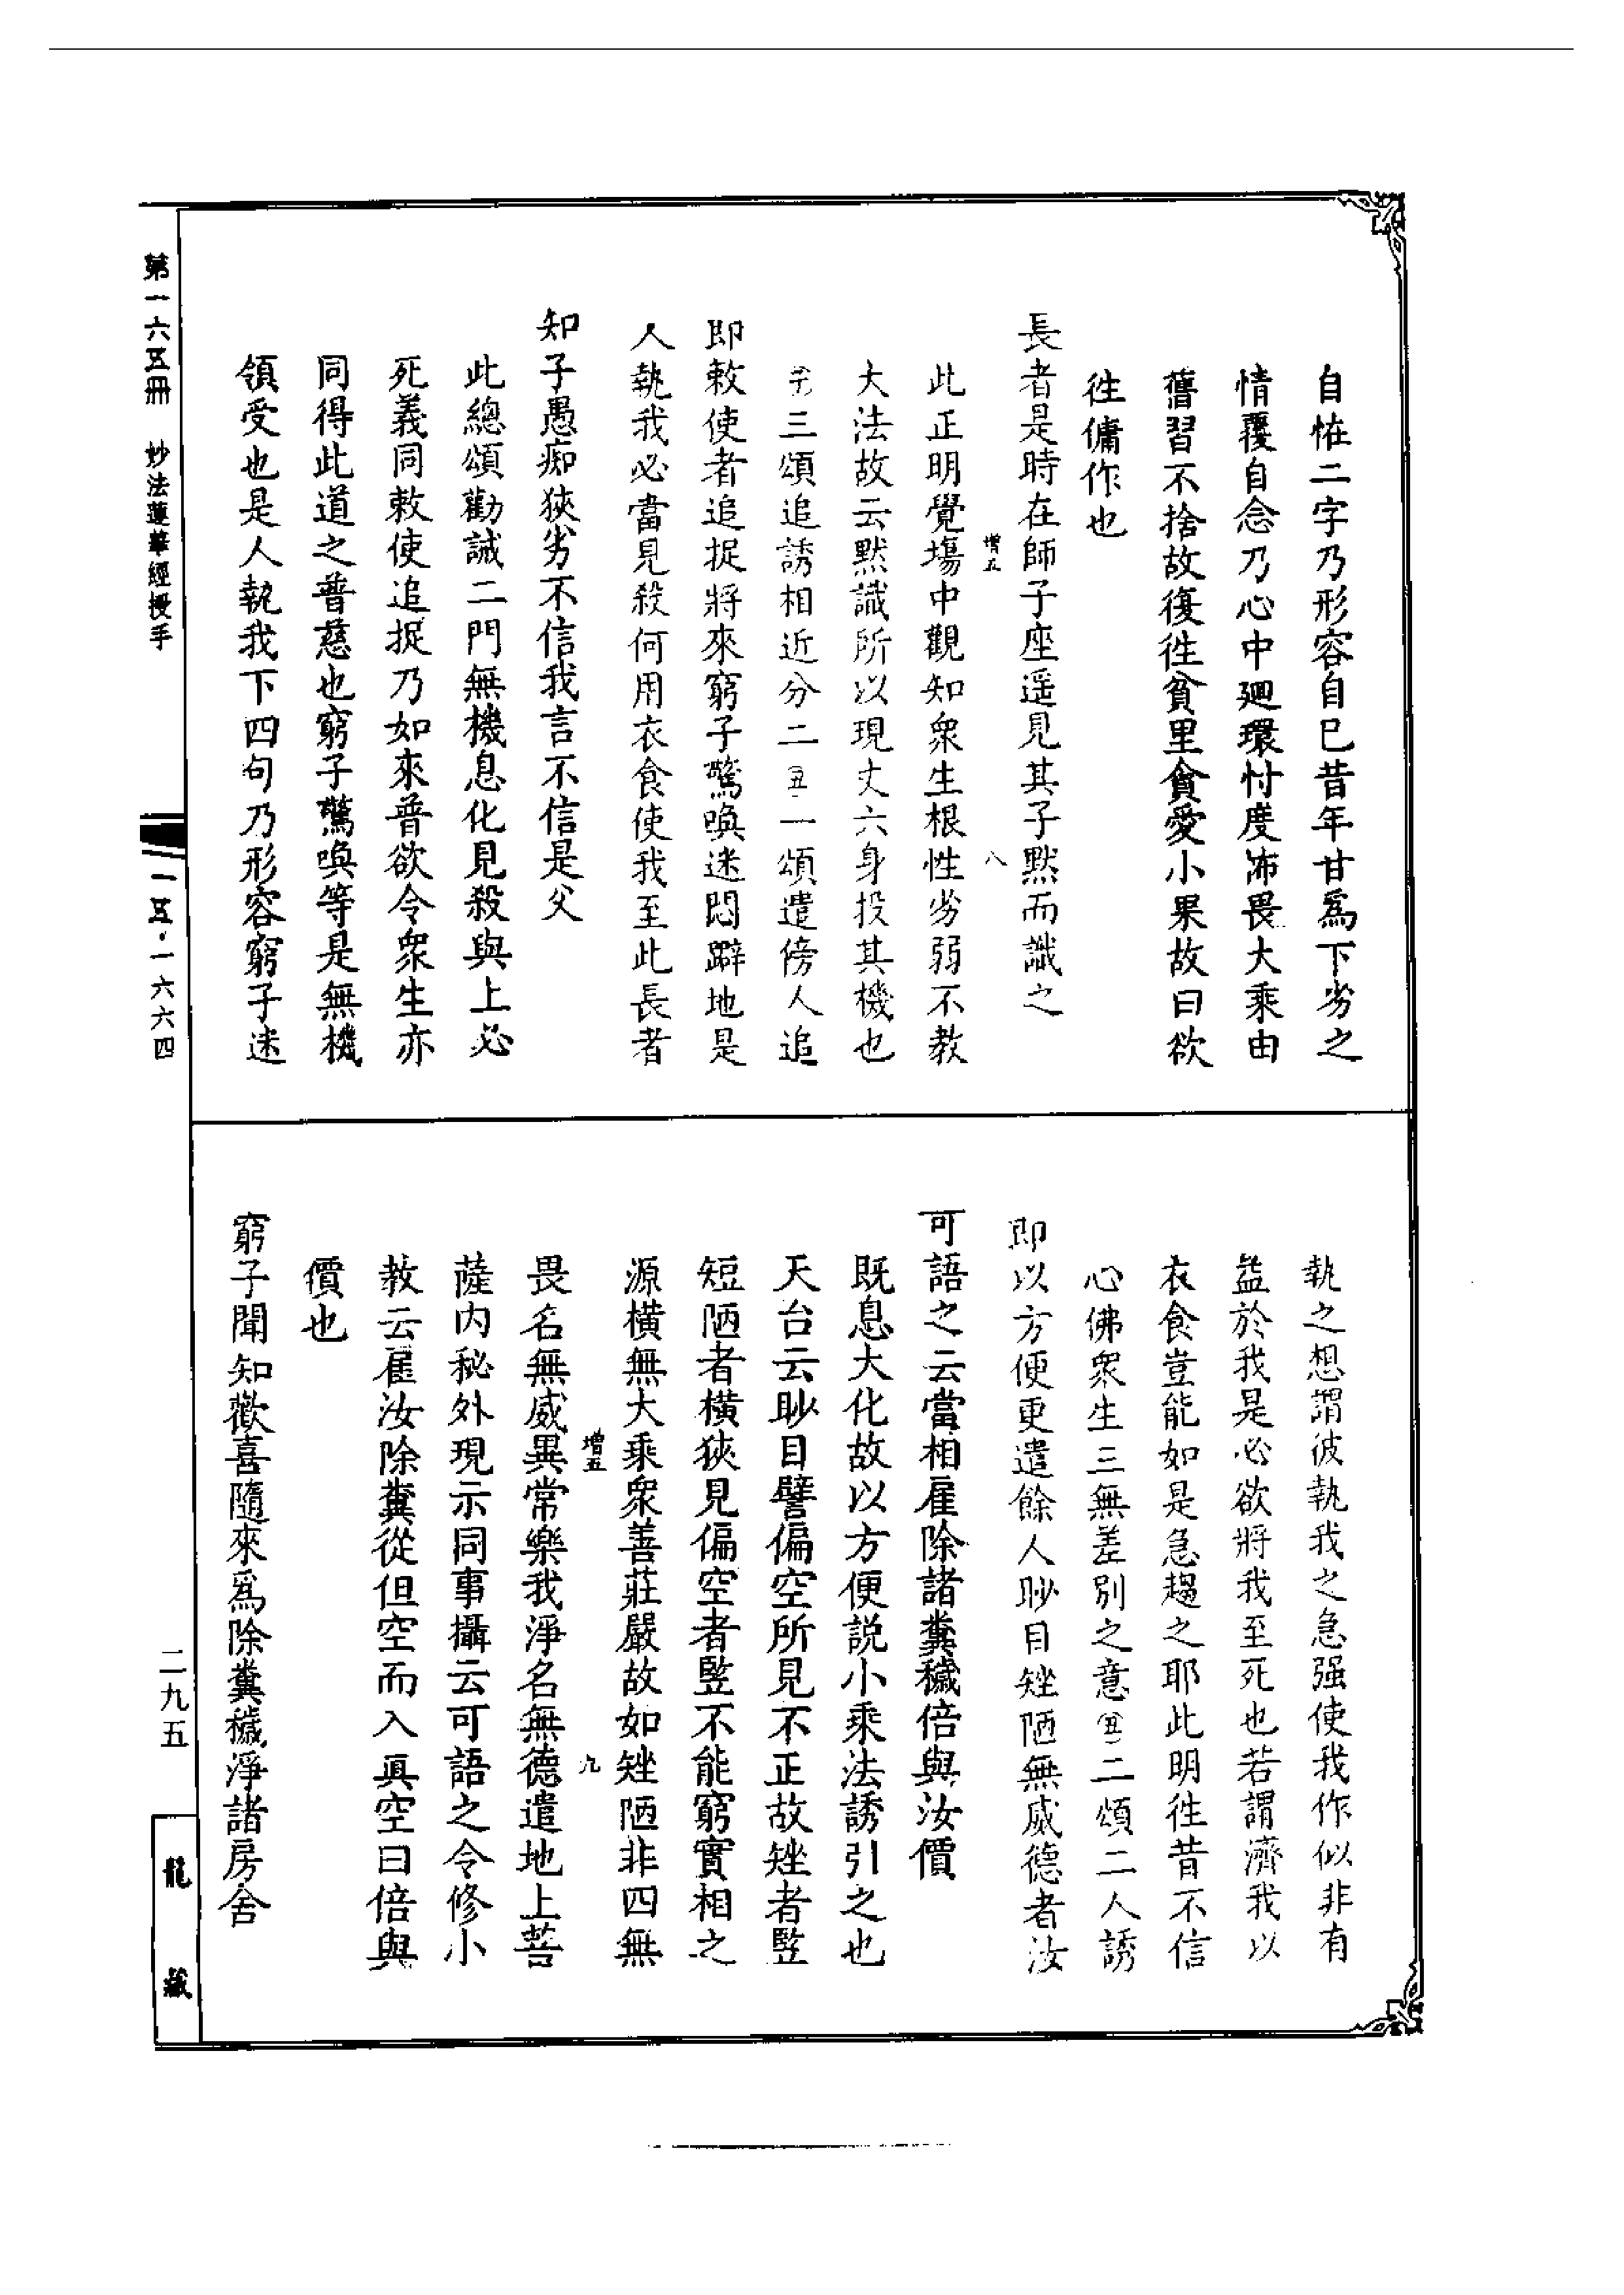 自怪二字乃形容自已昔年甘爲下劣之
情覆自念乃心中𢌞環忖度怖畏大乘由
舊習不捨故復徃貧里貪愛小果故曰欲
徃傭作也
長者是時在師子座遥見其子黙而識之
增五
八
此正明覺場中觀知衆生根性劣弱不教
大法故云黙識所以現丈六身投其機也
三頌追誘相近分二㊄一頌遣傍人追
即敕使者追捉將來窮子驚喚迷悶躃地是
人執我必當見殺何用衣食使我至此長者
知子愚痴狹劣不信我言不信是父
此總頌勸誡二門無機息化見殺與上必
死義同敕使追捉乃如來普欲令衆生亦
同得此道之普慈也窮子驚喚等是無機
領受也是人執我下四句乃形容窮子迷
執之想謂彼執我之急强使我作似非有
益於我是必欲將我至死也若謂濟我以
衣食豈能如是急趨之耶此明徃昔不信
心佛衆生三無差别之意二頌二人誘
即以方便更遣餘人眇目矬陋無威德者汝
可語之云當相雇除諸糞穢倍與汝價
既息大化故以方便説小乘法誘引之也
天台云眇目譬偏空所見不正故矬者竪
短陋者橫狹見偏空者竪不能窮實相之
源橫無大乘衆善莊嚴故如矬陋非四無
增五
九
畏名無威異常樂我淨名無德遣地上菩
薩内秘外現示同事攝云可語之令修小
教云雇汝除糞從但空而入眞空曰倍與
價也
窮子聞知歡喜隨來爲除糞穢淨諸房舍
第一六五册　妙法蓮華經授手
一五·一六六四
二九五
龍藏